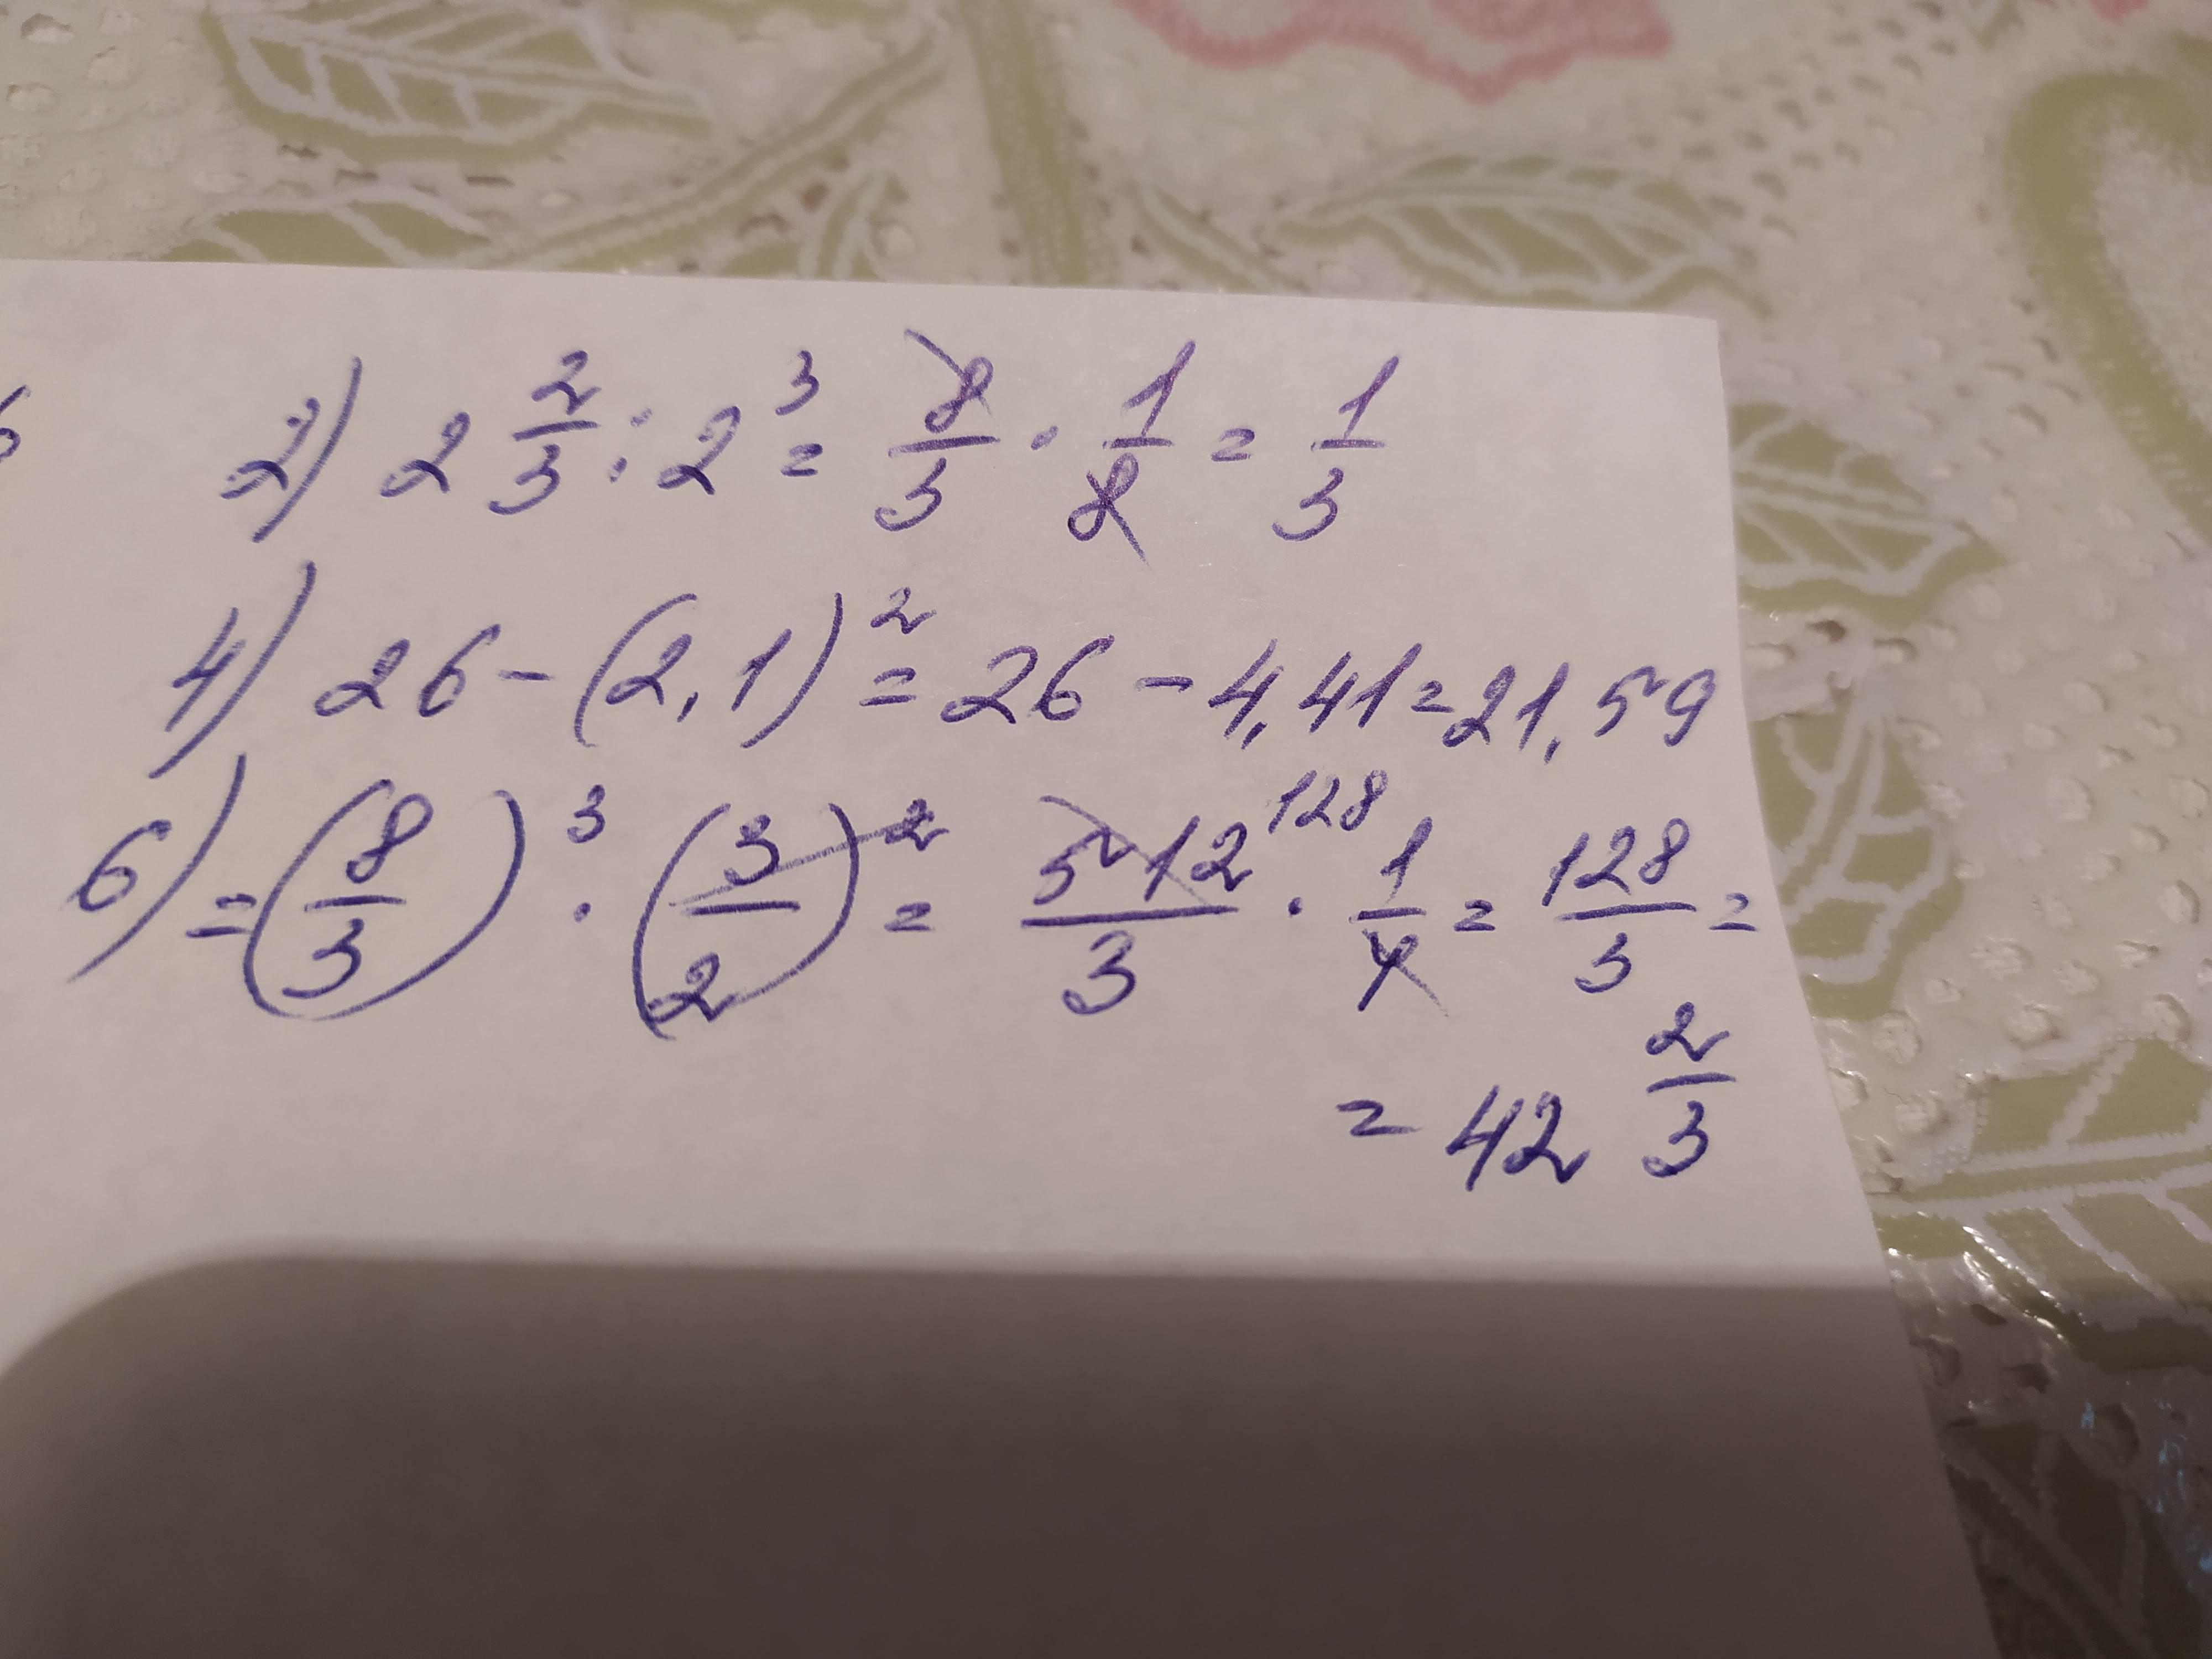 2) 2 2/3 : 2³ = 8/3 · 1/8 = 1/3
4) 26 - (2,1)² = 26 - 4,41 = 21,59
6) = (8/3)³ · (3/2)² = 512/3 128 · 1/4 = 128/3 =
= 42 2/3